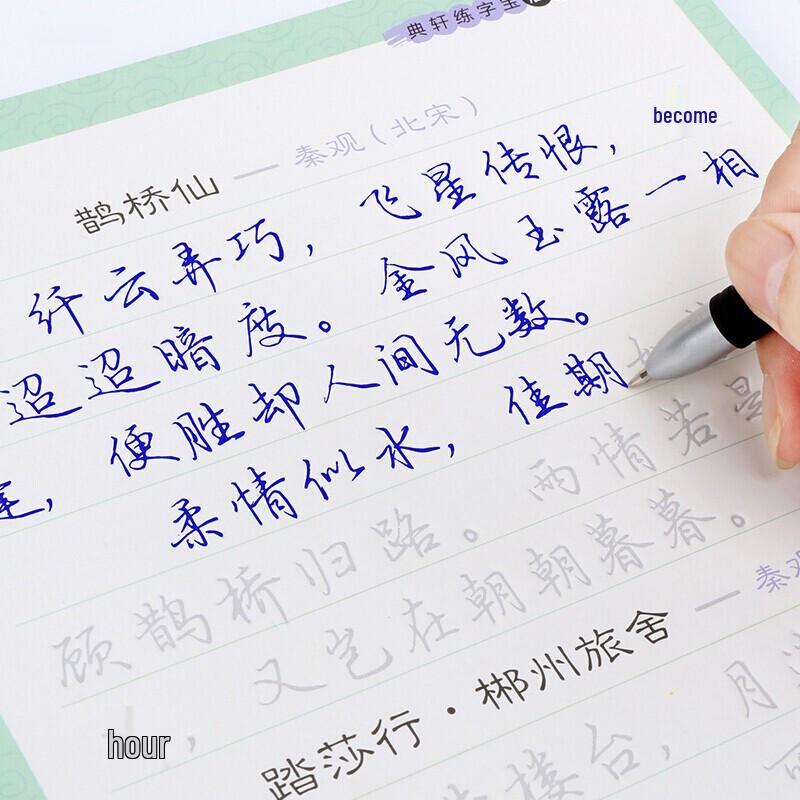 典轩练字宝
become
鹊桥仙 — 秦观（北宋）
纤云弄巧，飞星传恨，
迢迢暗度。金风玉露一相
逢，便胜却人间无数。
柔情似水，佳期
两情若是
顾鹊桥归路。
又岂在朝朝暮暮。
踏莎行·郴州旅舍 — 秦观
hour
楼台，月